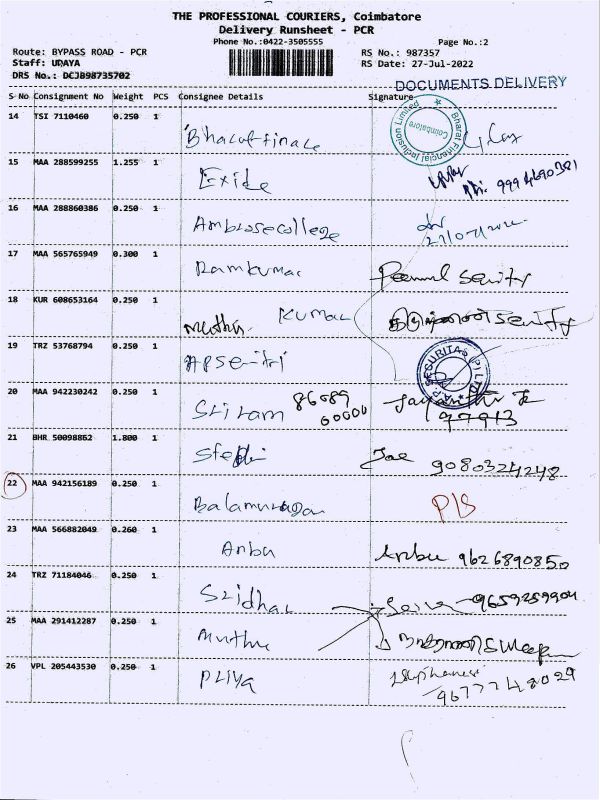 THE PROFESSIONAL COURIERS, Coimbatore
Delivery Runsheet - PCR
Phone No.:0422-3505555
Page No.:2
Route: BYPASS ROAD - PCR
RS No.: 987357
Staff: UDAYA
RS Date: 27-Jul-2022
DRS No.: DCJB98735702
DOCUMENTS DELIVERY
S No Consignment No Weight PCS Consignee Details Signature
14 TSI 7110460 0.250 1
Bharat finance
Bharat Financial Inclusion Limited
Coimbatore
15 MAA 288599255 1.255 1
Exide
16 MAA 288860386 0.250 1
Ambrose college
17 MAA 565765949 0.300 1
Ramkumar
18 KUR 608653164 0.250 1
Muthu Kumar
19 TRZ 53768794 0.250 1
AP Seritri
A.P. SECURITAS (P) LTD
20 MAA 942230242 0.250 1
Sriram 86089 60000
77913
21 BHR 50098862 1.800 1
Joe 9080324248
22 MAA 942156189 0.250 1
Balamurugan
P/S
23 MAA 566882049 0.260 1
Anbu
Anbu 9626890850
24 TRZ 71184046 0.250 1
Sridhar
25 MAA 291412287 0.250 1
Muthu
26 VPL 205443530 0.250 1
Priya
9677748029